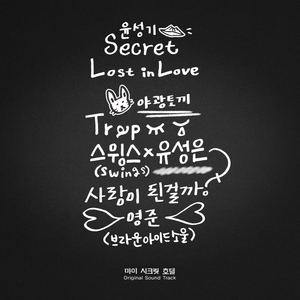 윤성기
Secret
Lost in Love
야광토끼
Trap
스윙스×유성은
(Swings)
사랑이 된걸까
영준
(브라운아이드소울)
마이 시크릿 호텔
Original Sound Track